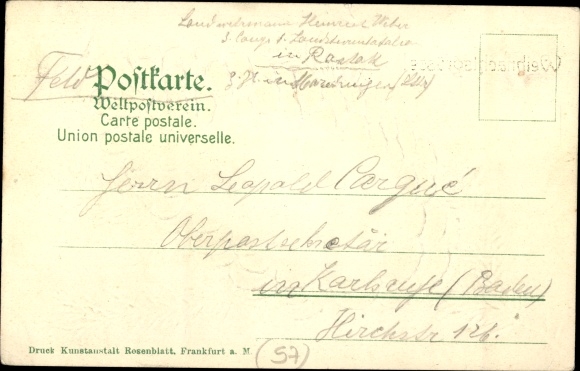 Landwehrmann Heinrich Weber
in Rastatt
z. Zt. in
Feld Postkarte.
Weltpostverein.
Carte postale.
Union postale universelle.
Herrn Leopold Carqué
Oberpostsekretär
in Karlsruhe (Baden)
Hirschstr 126.
Druck Kunstanstalt Rosenblatt, Frankfurt a. M.
(57)